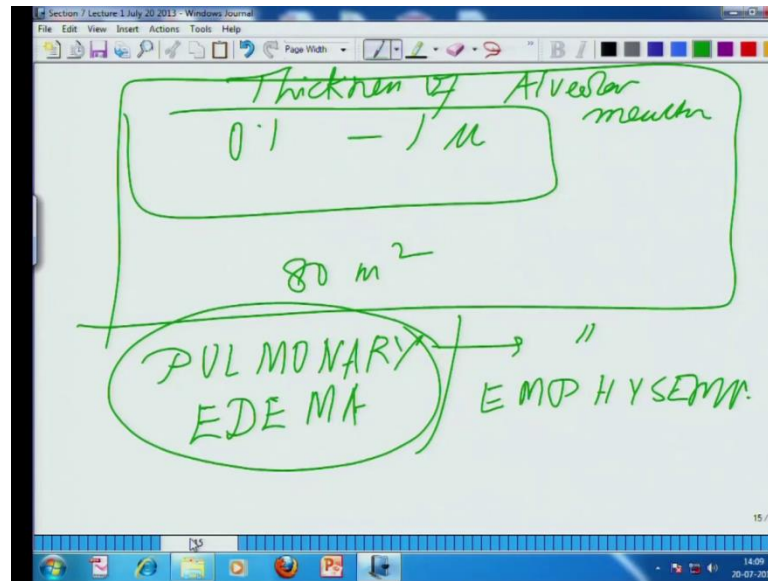 Section 7 Lecture 1 July 20 2013 - Windows Journal
File Edit View Insert Actions Tools Help
Page Width
B I
Thickness of Alveolar
0.1 - 1 μ
80 m²
PULMONARY
EDEMA
→ "
EMPHYSEMA.
15 /
15
14:09
20-07-20